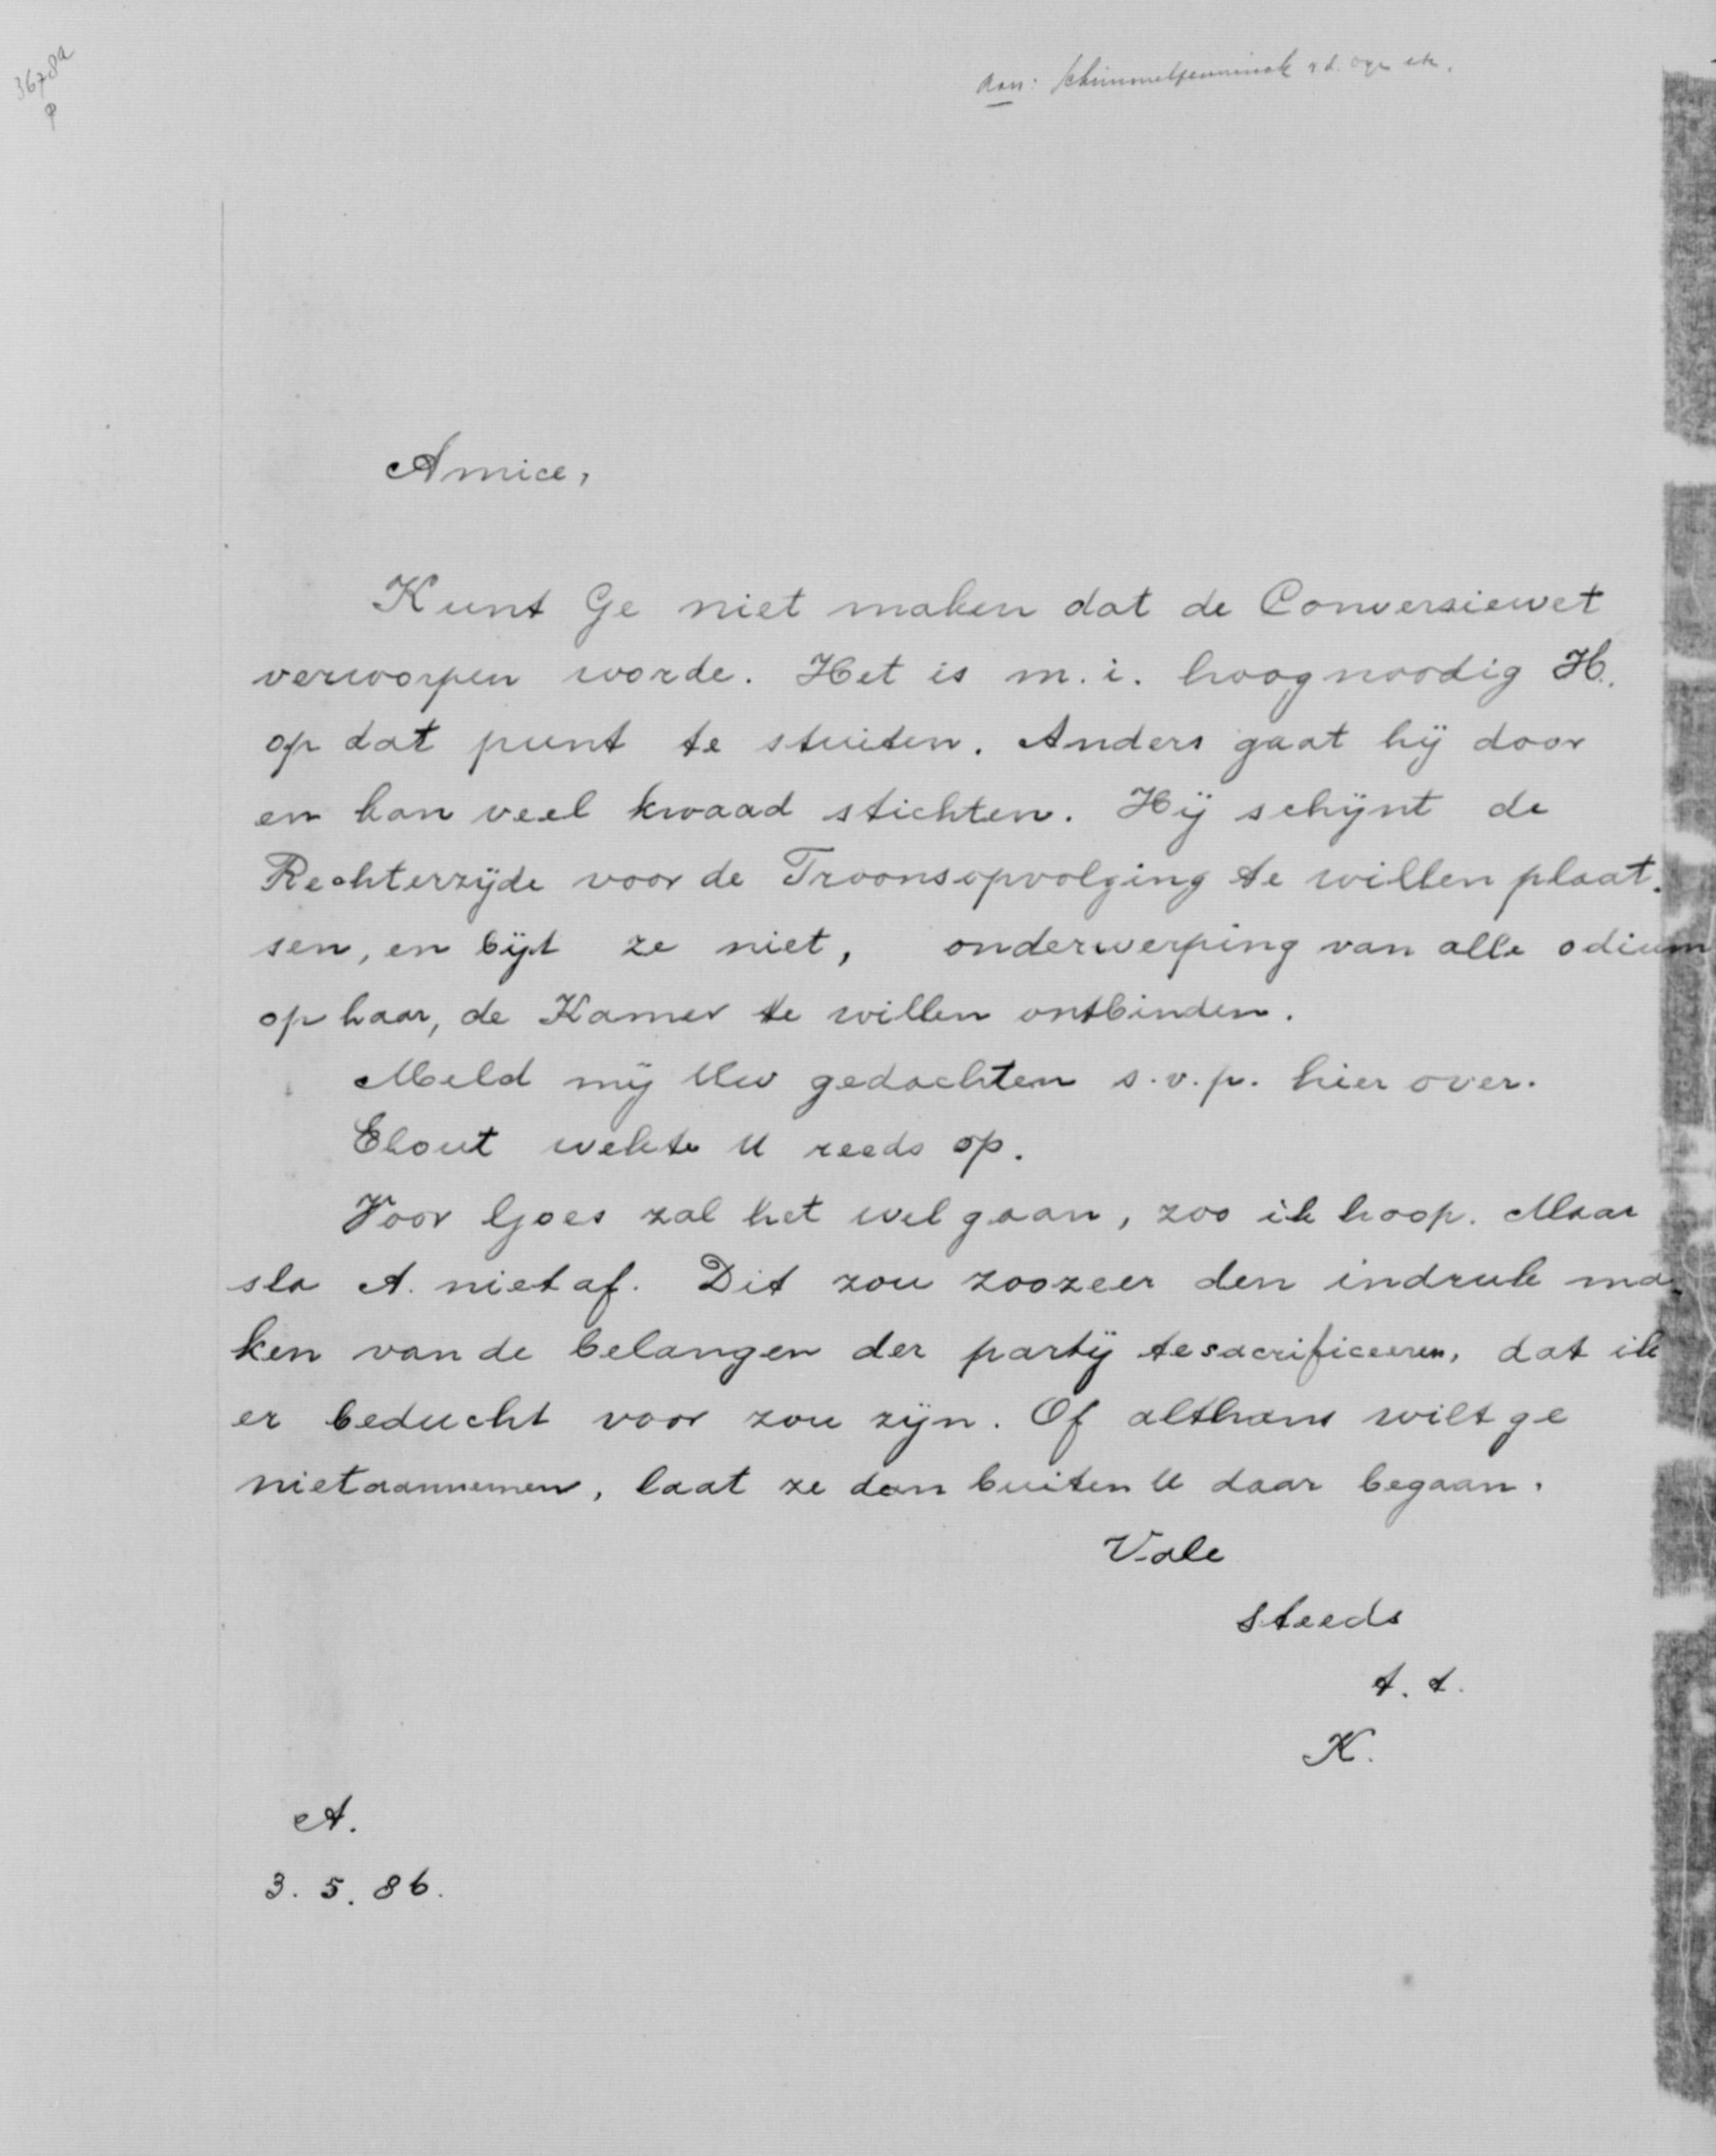 3678a
Aan: Schimmelpenninck v.d. Oye etc.
Amice,
Kunt Ge niet maken dat de Conversiewet
verworpen worde. Het is m.i. hoognoodig H.
op dat punt te stuiten. Anders gaat hij door
en kan veel kwaad stichten. Hij schijnt de
Rechterzijde voor de Troonsopvolging te willen plaat-
sen, en bijt ze niet, onderwerping van alle odium
op haar, de Kamer te willen ontbinden.
Meld mij Uw gedachten s.v.p. hier over.
Elout wekte U reeds op.
Voor Goes zal het wel gaan, zoo ik hoop. Maar
sla A. niet af. Dit zou zoozeer den indruk ma-
ken van de belangen der partij te sacrificeeren, dat ik
er beducht voor zou zijn. Of althans wilt ge
niet aannemen, laat ze dan buiten U daar begaan.
Vale
steeds
t.t.
K.
A.
3.5.86.